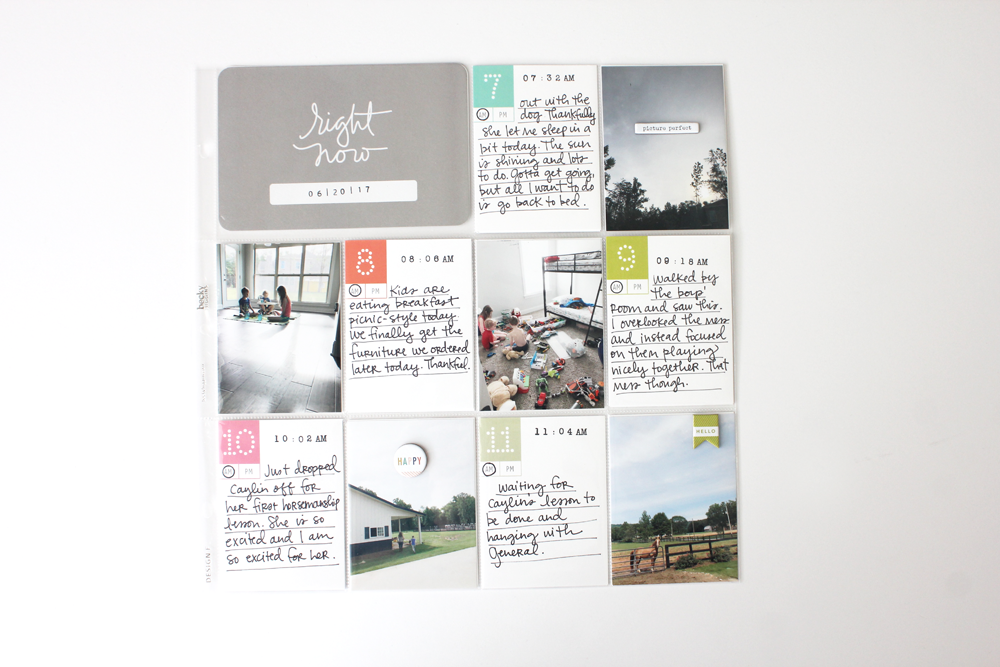 right
now
06|20|17
7
07:32 AM
AM PM
out with the
dog. Thankfully
she let me sleep in a
bit today. The sun
is shining and lots
to do. Gotta get going,
but all I want to do
is go back to bed.
picture perfect
8
08:08 AM
AM PM
Kids are
eating breakfast
picnic-style today
We finally get the
furniture we ordered
later today. Thankful.
9
09:18 AM
AM PM
Walked by
the boys'
room and saw this.
I overlooked the mess
and instead focused
on them playing
nicely together. That
mess though.
10
10:02 AM
AM PM
Just dropped
Caylin off for
her first horsemanship
lesson. She is so
excited and I am
so excited for her.
HAPPY
11
11:04 AM
AM PM
Waiting for
Caylin's lesson to
be done and
hanging with
General.
HELLO
becky